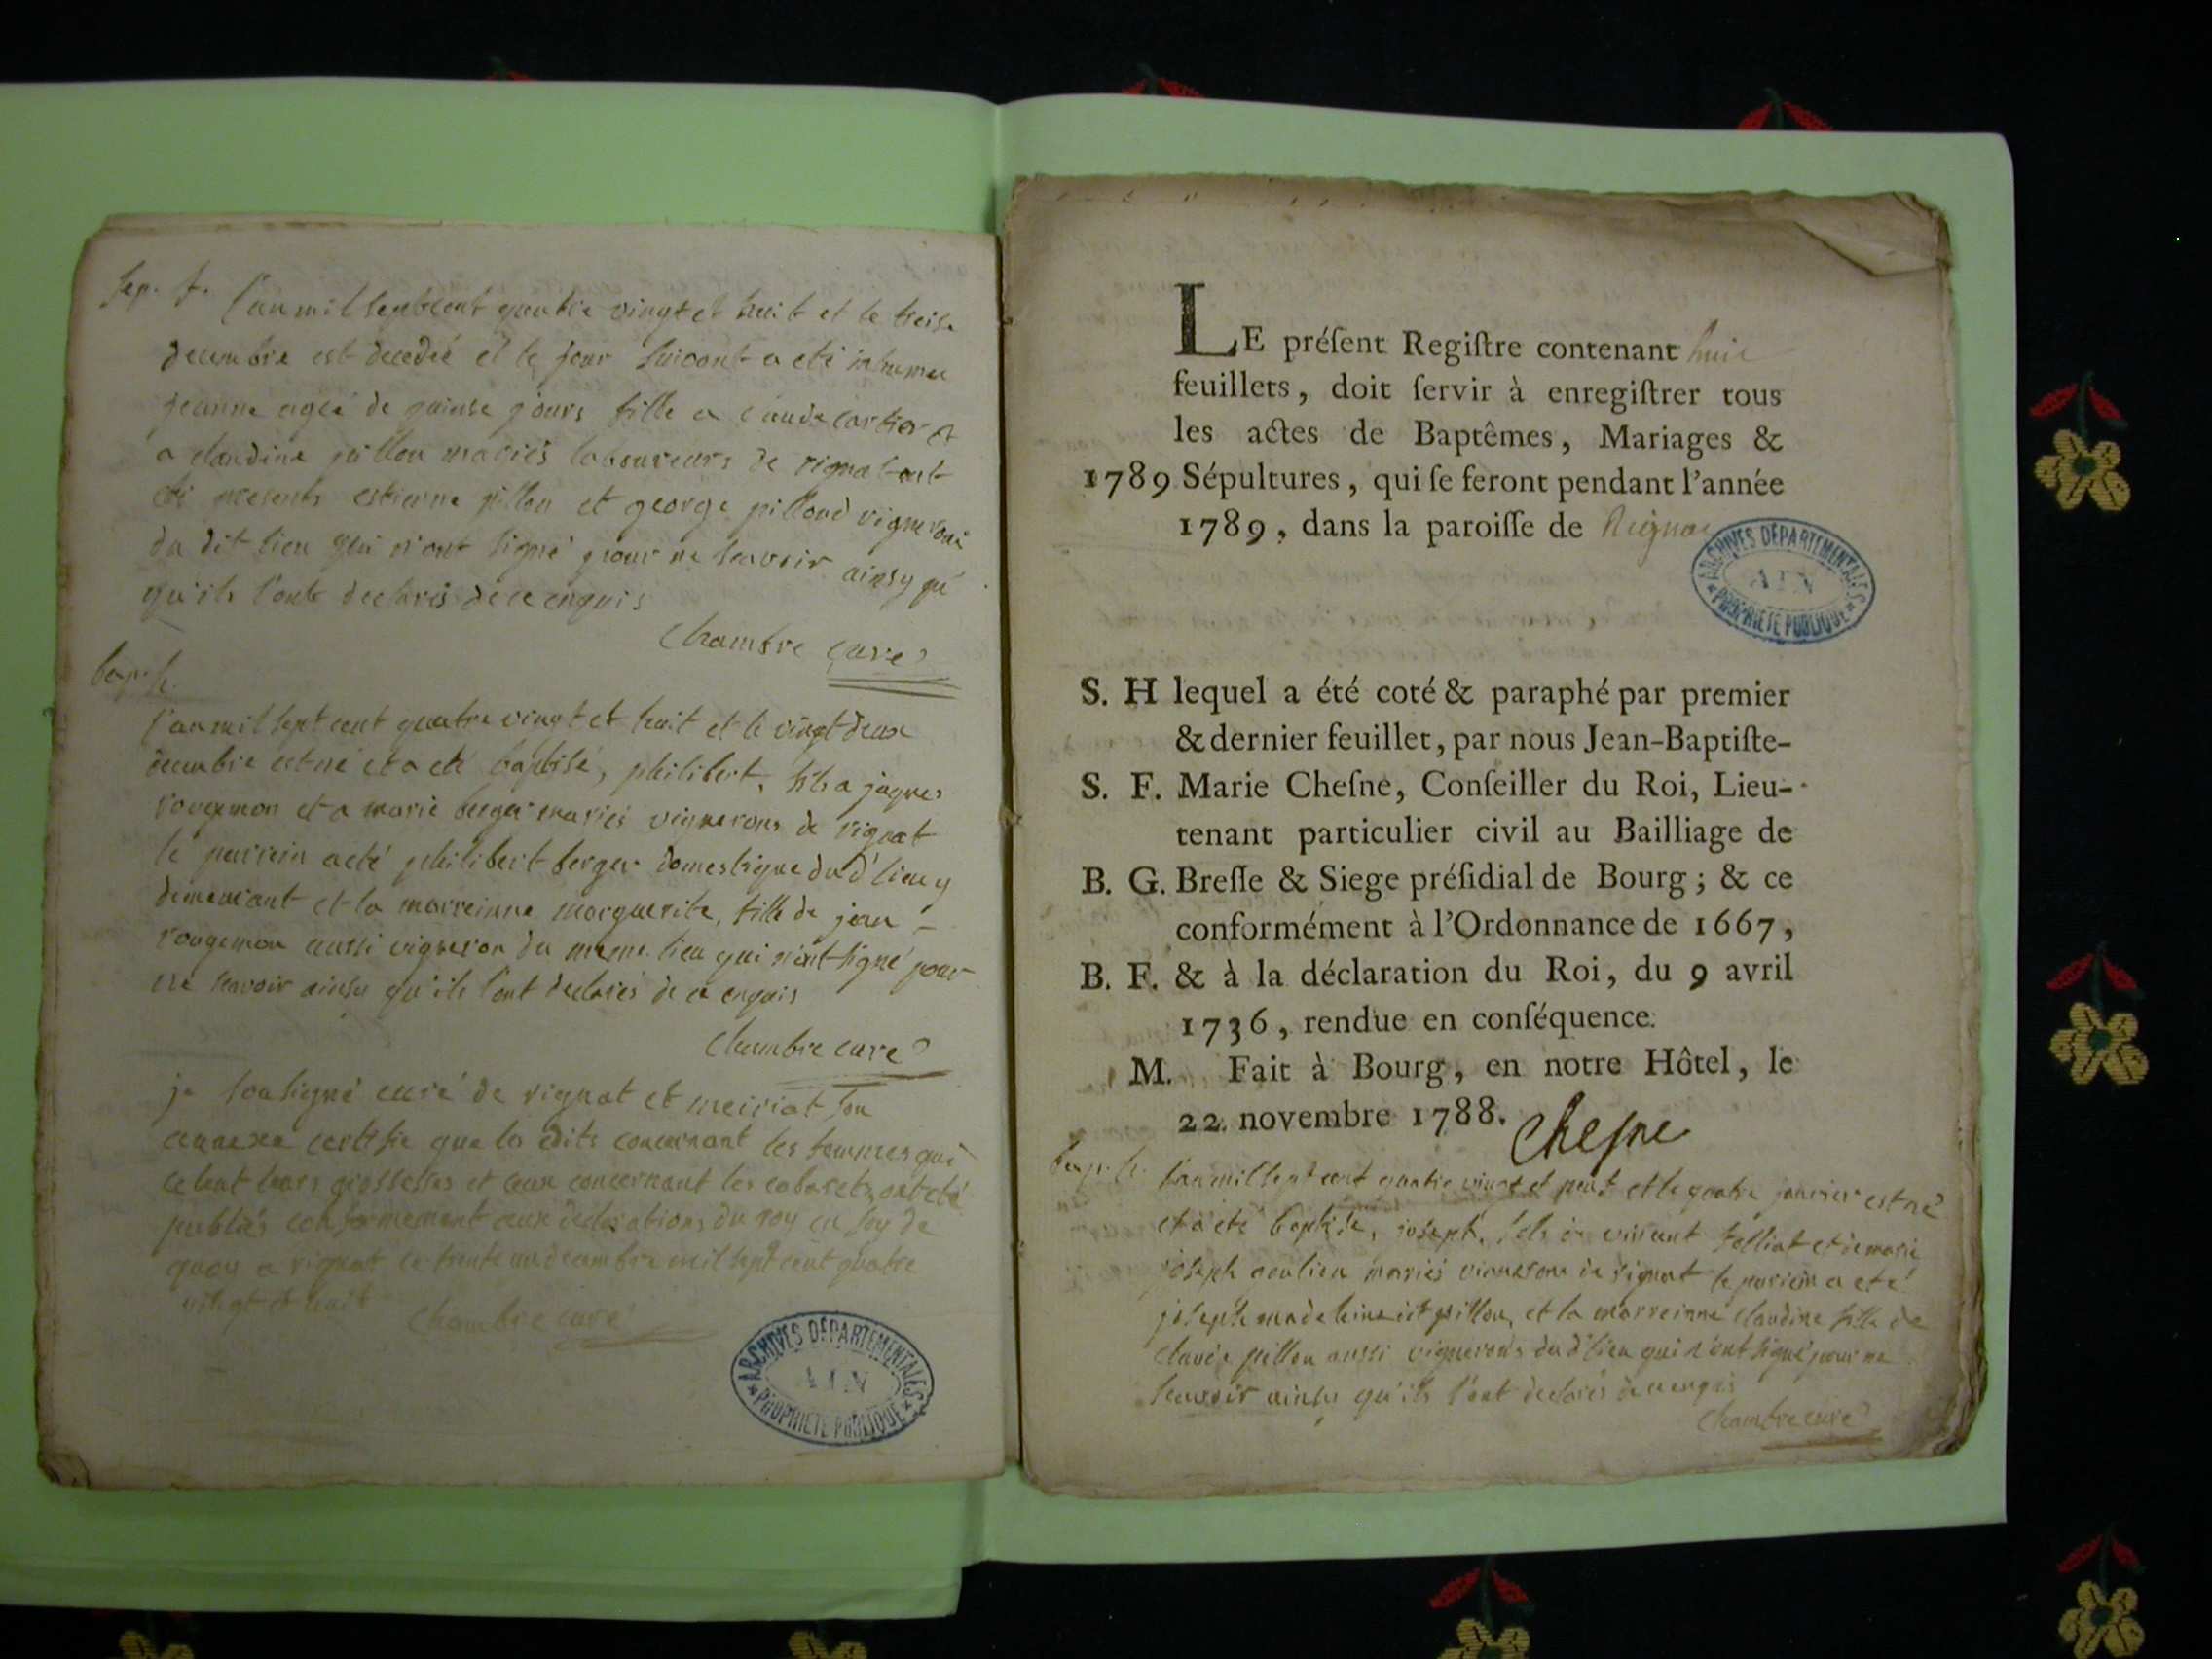 Sep. f. l'an mil sept cent quatre vingt et huit et le treise
decembre est decedeé et le jour suivant a eté inhumeé
jeanne ageé de quinse jours fille a claude cartier et
a claudine pillon mariés laboureurs de rignat ont
eté presents estienne pillon et george pillond vignerons
du dit lieu qui n'ont signé pour ne scavoir ainsy qu'
qu'ils l'ont declarés de ce enquis
Chambre curé
bap. h.
l'an mil sept cent quatre vingt et huit et le vingt deux
decembre est né et a eté baptisé, philibert, fils a jaques
rougemon et a marie berger mariés vignerons de rignat
le parrein a eté philibert berger domestique du d' lieu y
demeurant et la marreinne marguerite, fille de jean
rougemon aussi vigneron du meme lieu qui n'ont signé pour
ne scavoir ainsy qu'ils l'ont declarés de ce enquis
Chambre curé
je sousigné curé de rignat et meiriat son
annexe certifie que les edits concernant les femmes qui
celent leurs grossesses et ceux concernant les cabarets ont eté
publiés conformement aux declarations du roy en foy de
quoy a rignat le trente un decembre mil sept cent quatre
vingt et huit Chambre curé
ARCHIVES DÉPARTEMENTALES
AIN
PROPRIÉTÉ PUBLIQUE
LE préſent Regiſtre contenant huit
feuillets, doit ſervir à enregiſtrer tous
les actes de Baptêmes, Mariages &
1789 Sépultures, qui ſe feront pendant l'année
1789, dans la paroiſſe de Rignat
ARCHIVES DÉPARTEMENTALES
AIN
PROPRIÉTÉ PUBLIQUE
S. H lequel a été coté & paraphé par premier
& dernier feuillet, par nous Jean-Baptiſte-
S. F. Marie Cheſne, Conſeiller du Roi, Lieu-
tenant particulier civil au Bailliage de
B. G. Breſſe & Siege préſidial de Bourg; & ce
conformément à l'Ordonnance de 1667,
B. F. & à la déclaration du Roi, du 9 avril
1736, rendue en conſéquence.
M. Fait à Bourg, en notre Hôtel, le
22 novembre 1788. Cheſne
bap. h. l'an mil sept cent quatre vingt et neuf et le quatre janvier est né
et a eté baptisé, joseph, fils a vincent et de marie
joseph mariés vignerons de rignat le parrein a eté
joseph madeleine dit pillon, et la marreinne claudine fille de
claude pillon aussi vignerons du d' lieu qui n'ont signé pour ne
scavoir ainsy qu'ils l'ont declarés de ce enquis
Chambre curé